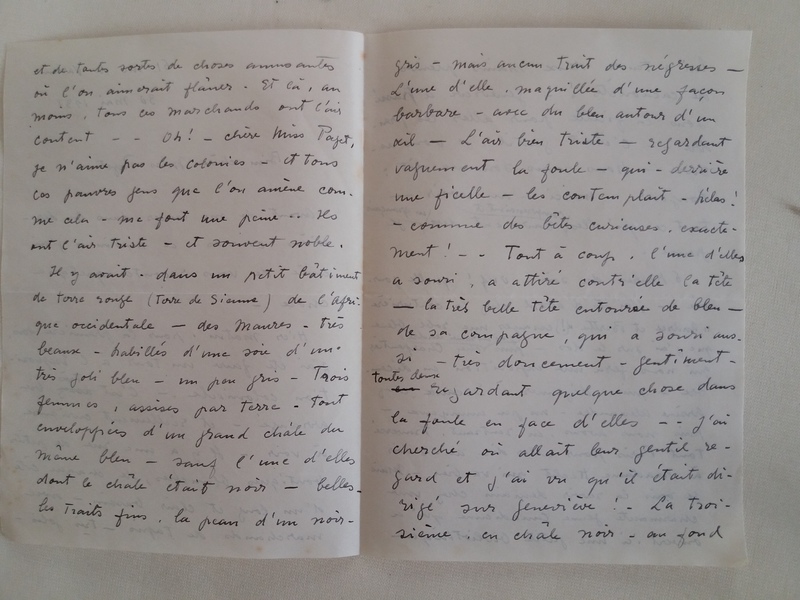 et de toutes sortes de choses amusantes
où l'on aimerait flâner. Et là, au
moins, tous ces marchands ont l'air
content - - Oh! - chère Miss Paget,
je n'aime pas les colonies - et tous
ces pauvres gens que l'on amène com-
me cela - me font une peine.. Ils
ont l'air triste - et souvent noble.
Il y avait - dans un petit bâtiment
de terre rouge (Terre de Sienne) de l'Afri-
que occidentale - des Maures - très
beaux - habillés d'une soie d'un
très joli bleu - un peu gris - Trois
femmes, assises par terre - tout
enveloppées d'un grand châle du
même bleu - sauf l'une d'elles
dont le châle était noir - belles -
les traits fins, la peau d'un noir-
gris - mais aucun trait des négresses -
L'une d'elle, maquillée d'une façon
barbare - avec du bleu autour d'un
œil - L'air bien triste - regardant
vaguement la foule - qui - derrière
une ficelle - les contemplait - hélas!
- comme des bêtes curieuses, exacte-
ment! - - Tout à coup, l'une d'elles
a souri, a attiré contr'elle la tête
- la très belle tête entourée de bleu -
de sa compagne, qui a souri aus-
si - très doucement - gentiment -
toutes deux
regardant quelque chose dans
la foule en face d'elles - - J'ai
cherché où allait leur gentil re-
gard et j'ai vu qu'il était di-
rigé sur Geneviève! - La troi-
sième, en châle noir - au fond